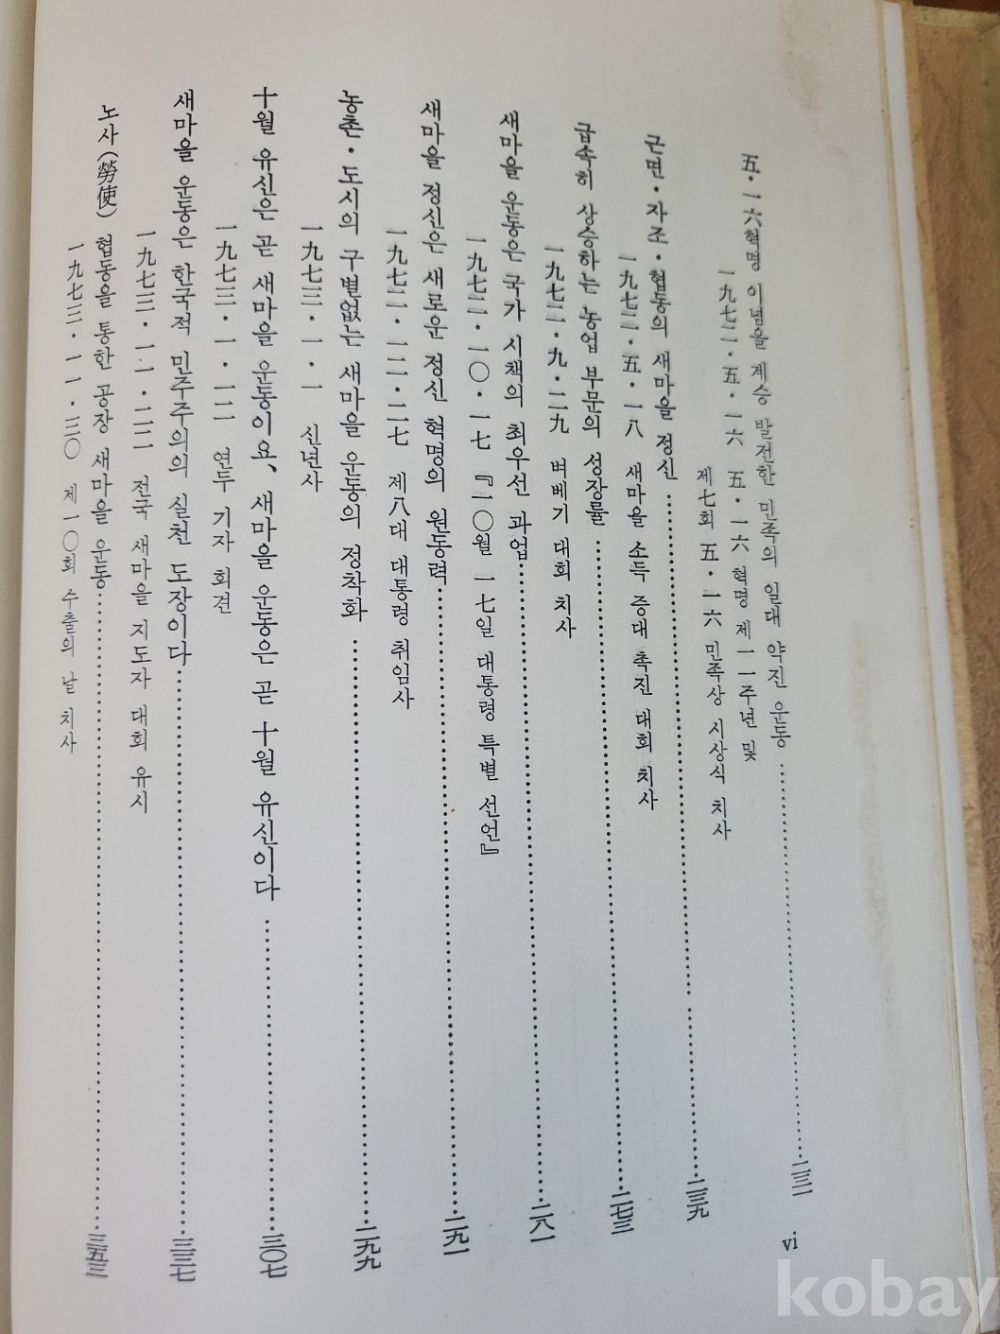 五·一六혁명 이념을 계승 발전한 민족의 일대 약진 운동 ……………… 二三一
一九七二·五·一六 五·一六 혁명 제一一주년 및
제七회 五·一六 민족상 시상식 치사
근면·자조·협동의 새마을 정신 ……………… 二三九
一九七二·五·一八 새마을 소득 증대 촉진 대회 치사
급속히 상승하는 농업 부문의 성장률 ……………… 二七三
一九七二·九·二九 벼베기 대회 치사
새마을 운동은 국가 시책의 최우선 과업 ……………… 二八一
一九七二·一〇·一七 『一〇월 一七일 대통령 특별 선언』
새마을 정신은 새로운 정신 혁명의 원동력 ……………… 二九一
一九七二·一二·二七 제八대 대통령 취임사
농촌·도시의 구별없는 새마을 운동의 정착화 ……………… 二九九
一九七三·一·一 신년사
十월 유신은 곧 새마을 운동이요、새마을 운동은 곧 十월 유신이다 ……………… 三〇七
一九七三·一·一二 연두 기자 회견
새마을 운동은 한국적 민주주의의 실천 도장이다 ……………… 三三七
一九七三·一一·二二 전국 새마을 지도자 대회 유시
노사(勞使) 협동을 통한 공장 새마을 운동 ……………… 三五三
一九七三·一一·三〇 제一〇회 수출의 날 치사
vi
kobay